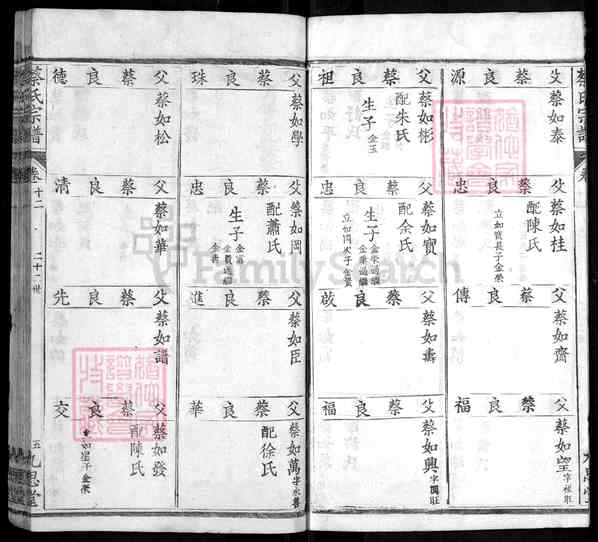 蔡氏宗譜
卷
父蔡良源
蔡如泰
父蔡良忠
蔡如桂
配陳氏
立如寳長子金榮
父蔡良傳
蔡如齋
父蔡良福
蔡如望
父蔡良祖
蔡如彬
配朱氏
生子
金玉
父蔡良忠
蔡如寳
配余氏
生子
父蔡良啟
蔡如壽
父蔡良福
蔡如興
父蔡良珠
蔡如學
父蔡良忠
蔡如岡
配蕭氏
生子
父蔡良進
蔡如臣
父蔡良華
蔡如萬
字永書
配徐氏
父蔡良德
蔡如松
父蔡良清
蔡如華
父蔡良先
蔡如譜
父蔡良交
蔡如發
配陳氏
蔡氏宗譜
卷十二
二十一世
五
九思堂
FamilySearch